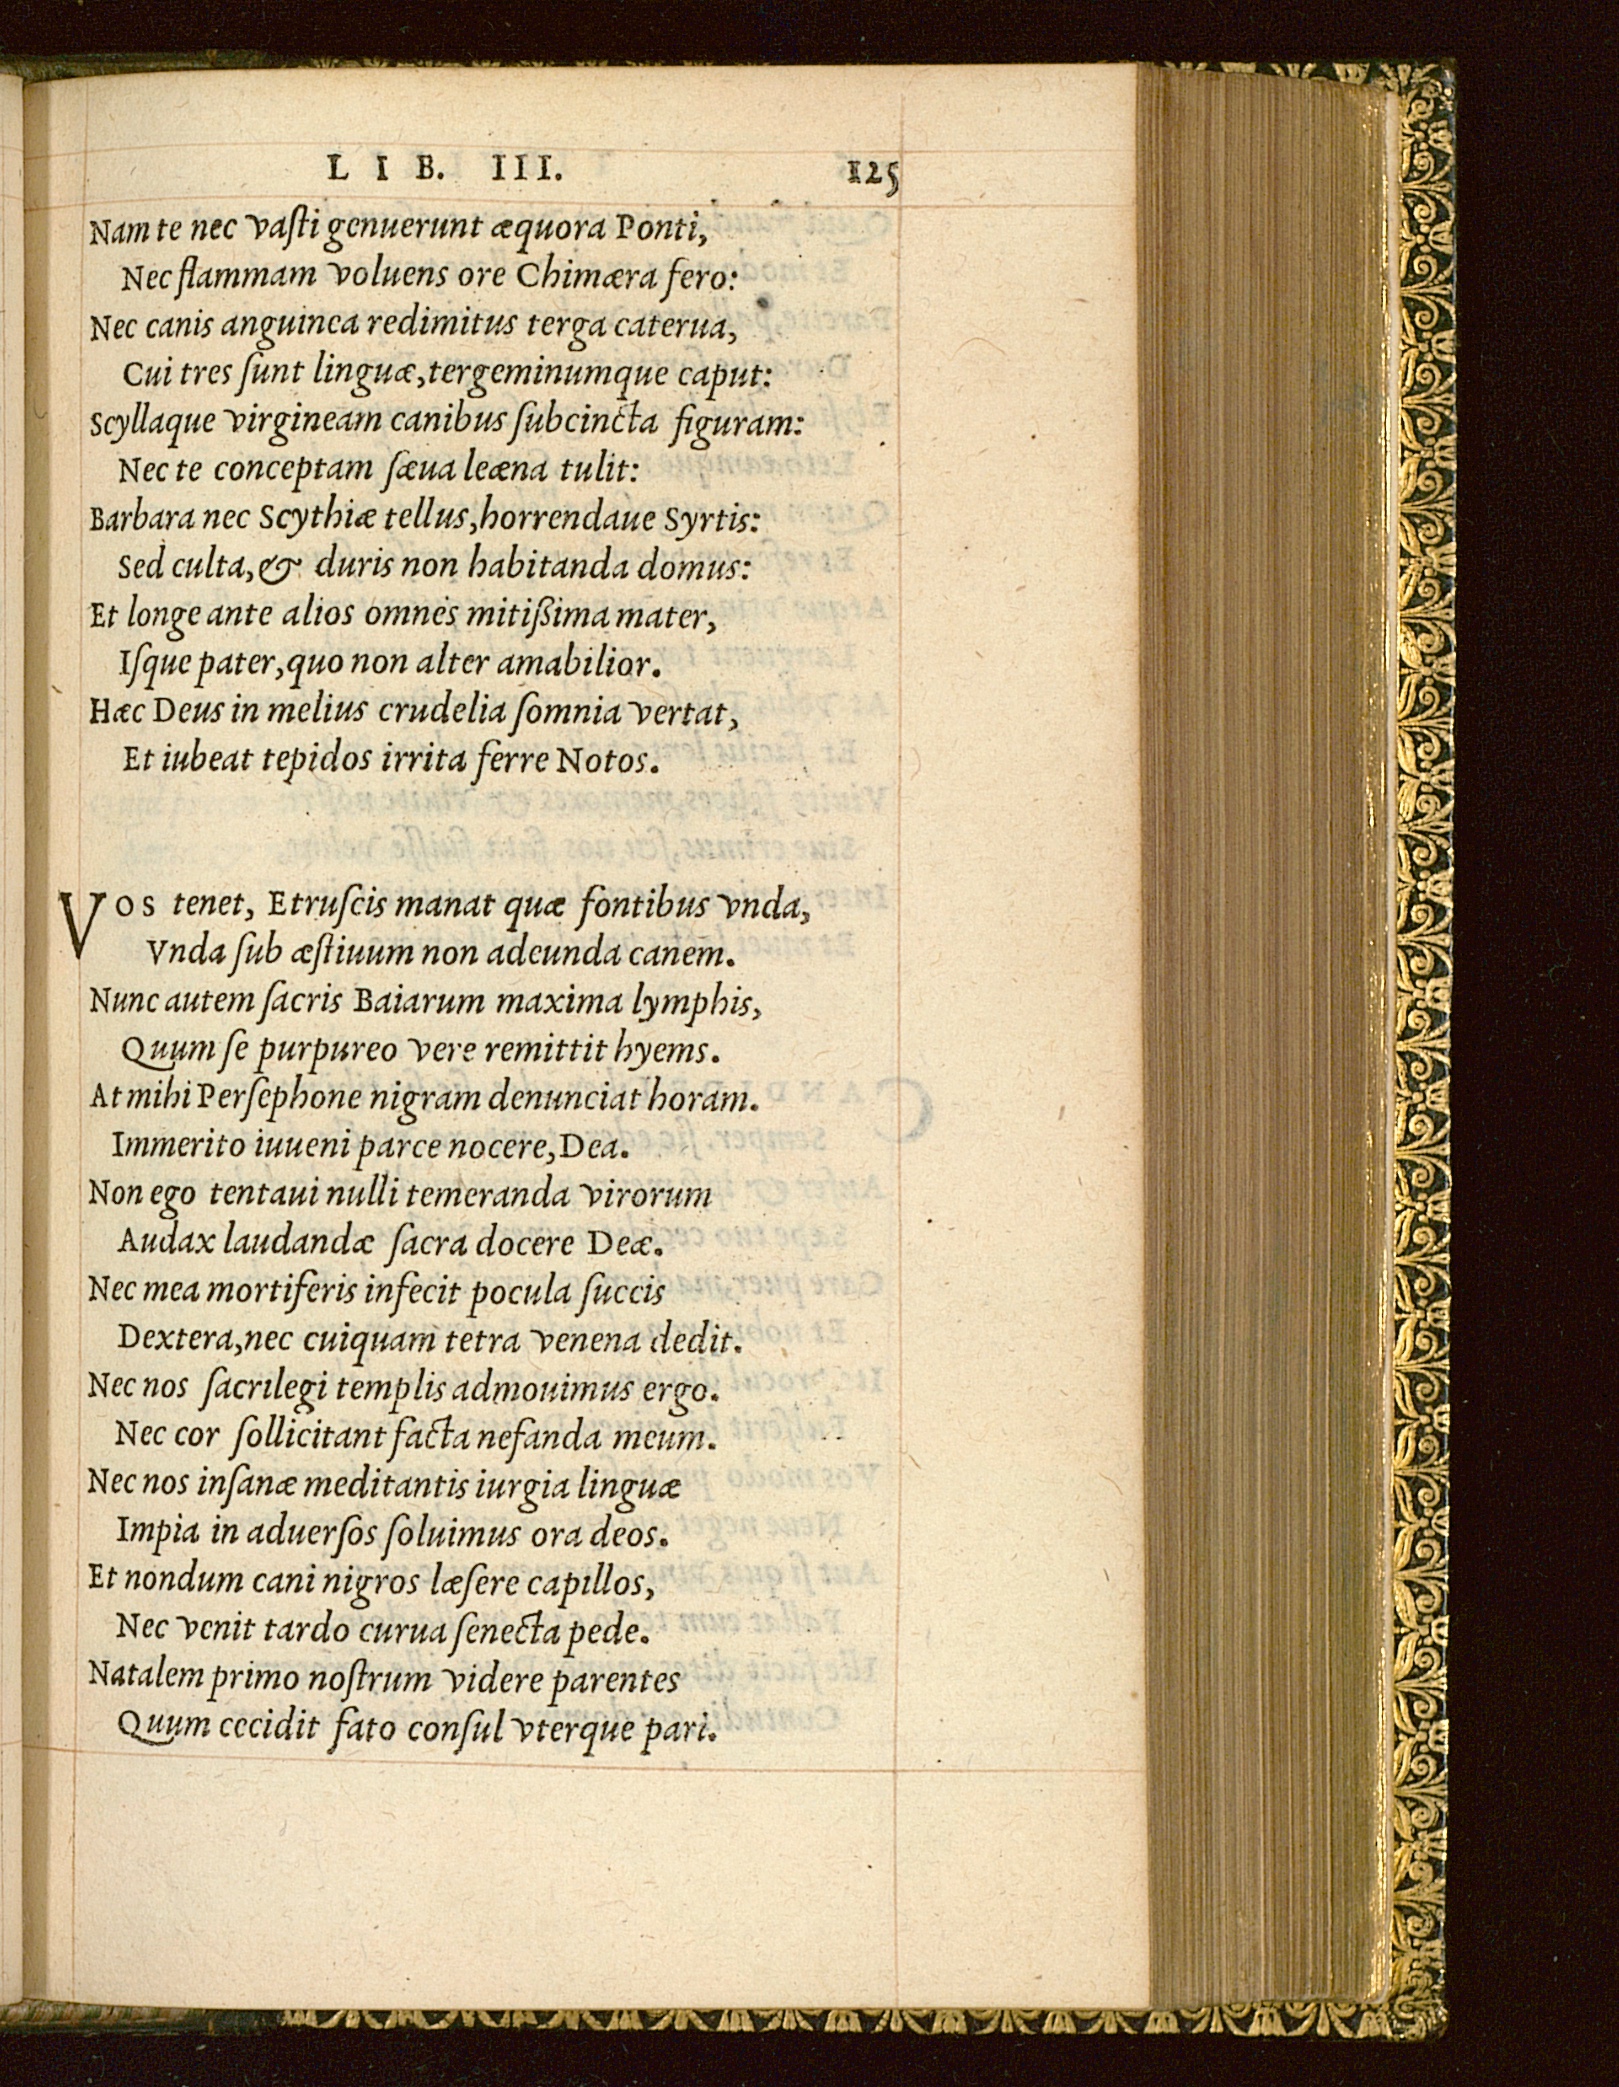 LIB. III. 125
Nam te nec vaſti genuerunt æquora Ponti,
Nec flammam voluens ore Chimæra fero:
Nec canis anguinea redimitus terga caterua,
Cui tres ſunt linguæ, tergeminumque caput:
Scyllaque virgineam canibus ſubcincta figuram:
Nec te conceptam ſæua leæna tulit:
Barbara nec Scythiæ tellus, horrendaue Syrtis:
Sed culta, & duris non habitanda domus:
Et longe ante alios omnes mitißima mater,
Iſque pater, quo non alter amabilior.
Hæc Deus in melius crudelia ſomnia vertat,
Et iubeat tepidos irrita ferre Notos.
VOS tenet, Etruſcis manat quæ fontibus vnda,
Vnda ſub æſtiuum non adeunda canem.
Nunc autem ſacris Baiarum maxima lymphis,
Quum ſe purpureo vere remittit hyems.
At mihi Perſephone nigram denunciat horam.
Immerito iuueni parce nocere, Dea.
Non ego tentaui nulli temeranda virorum
Audax laudandæ ſacra docere Deæ.
Nec mea mortiferis infecit pocula ſuccis
Dextera, nec cuiquam tetra venena dedit.
Nec nos ſacrilegi templis admouimus ergo.
Nec cor ſollicitant facta nefanda meum.
Nec nos inſanæ meditantis iurgia linguæ
Impia in aduerſos ſoluimus ora deos.
Et nondum cani nigros læſere capillos,
Nec venit tardo curua ſenecta pede.
Natalem primo noſtrum videre parentes
Quum cecidit fato conſul vterque pari.